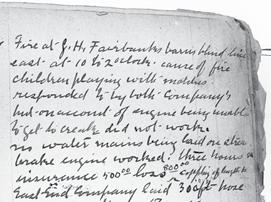 Fire at J. H. Fairbanks barns blind line
east. at 10 1/2 oclock. cause of fire
children playing with matches.
responded to by both Company's
but on account of engine being unable
to get to creake did not work.
no water mains being laid on street
brake engine worked. three hours
insurance 500.00 loss 800.00
East End Company laid 300 ft hose